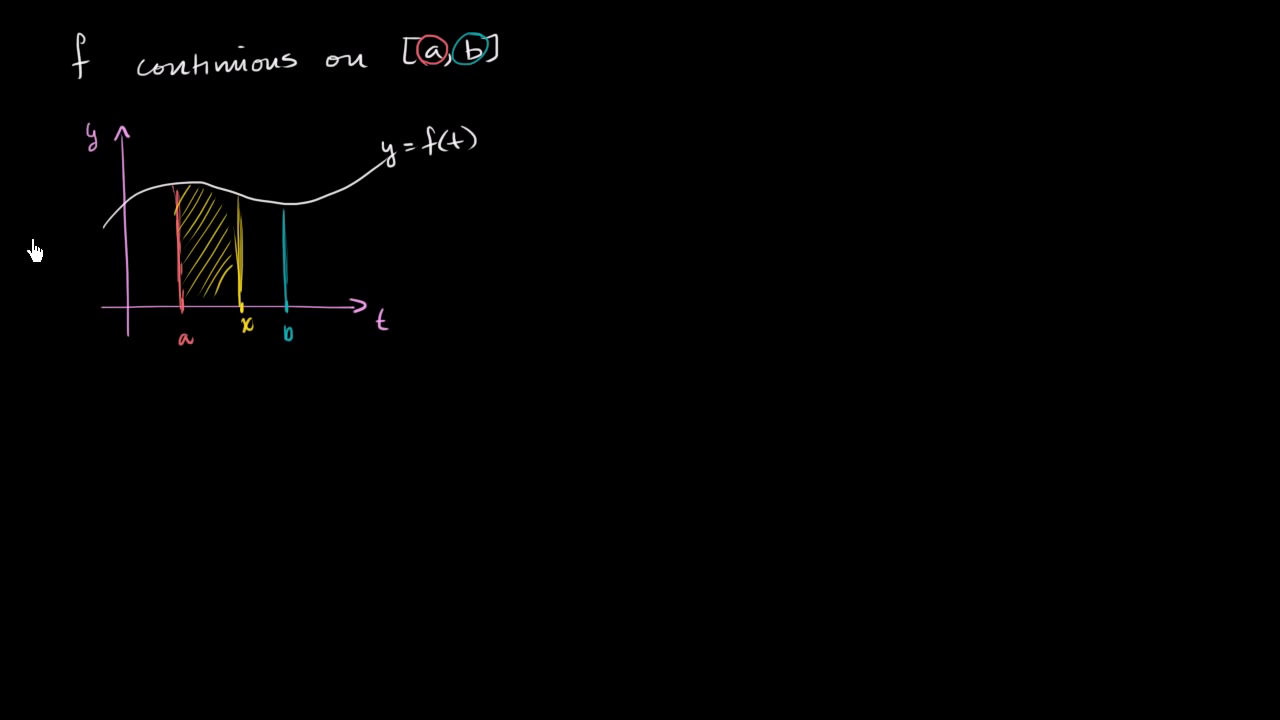 f continuous on [a,b]
y
y = f(t)
a
x
b
t